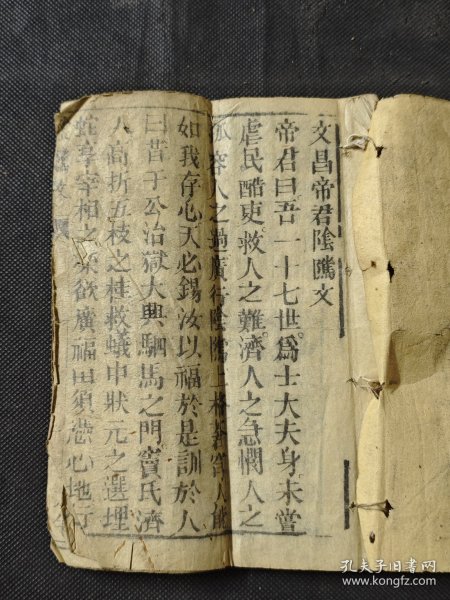 文昌帝君陰騭文
帝君曰吾一十七世爲士大夫身未嘗
虐民酷吏救人之難濟人之急憫人之
孤容人之過廣行陰騭上格蒼穹人能
如我存心天必錫汝以福於是訓於人
曰昔于公治獄大興駟馬之門竇氏濟
人高折五枝之桂救蟻中狀元之選埋
蛇享宰相之榮欲廣福田須憑心地行
孔夫子旧书网
www.kongfz.com